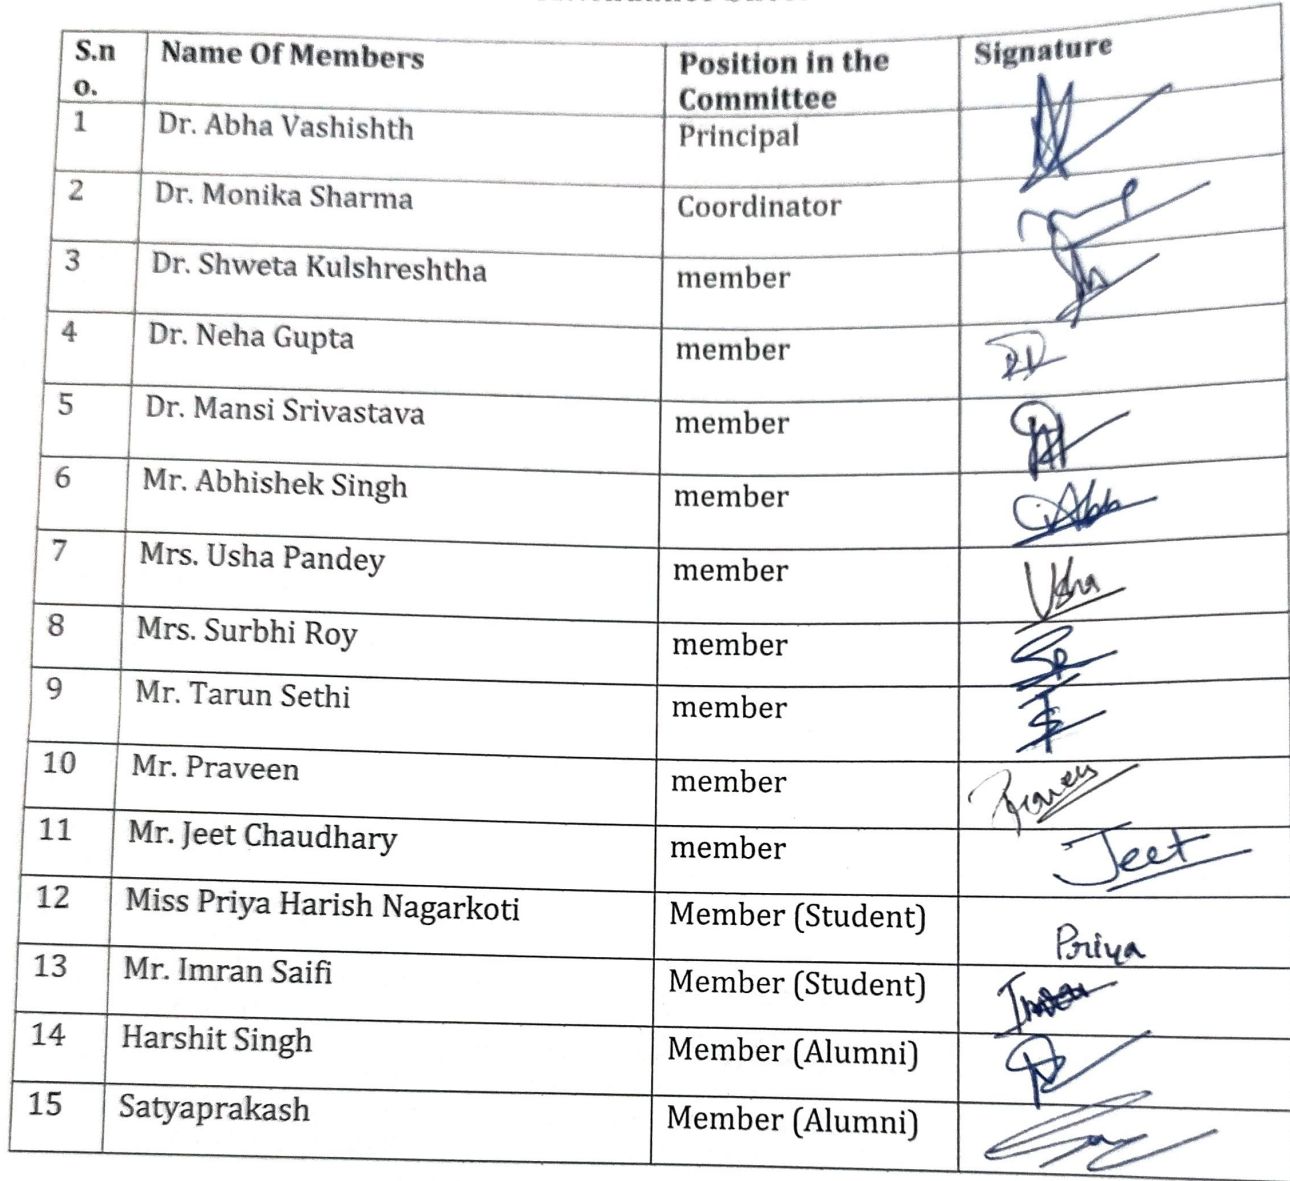 S.n Name Of Members Position in the Signature
o. Committee
1 Dr. Abha Vashishth Principal
2 Dr. Monika Sharma Coordinator
3 Dr. Shweta Kulshreshtha member
4 Dr. Neha Gupta member
5 Dr. Mansi Srivastava member
6 Mr. Abhishek Singh member
7 Mrs. Usha Pandey member Usha
8 Mrs. Surbhi Roy member
9 Mr. Tarun Sethi member
10 Mr. Praveen member
11 Mr. Jeet Chaudhary member Jeet
12 Miss Priya Harish Nagarkoti Member (Student) Priya
13 Mr. Imran Saifi Member (Student)
14 Harshit Singh Member (Alumni)
15 Satyaprakash Member (Alumni)